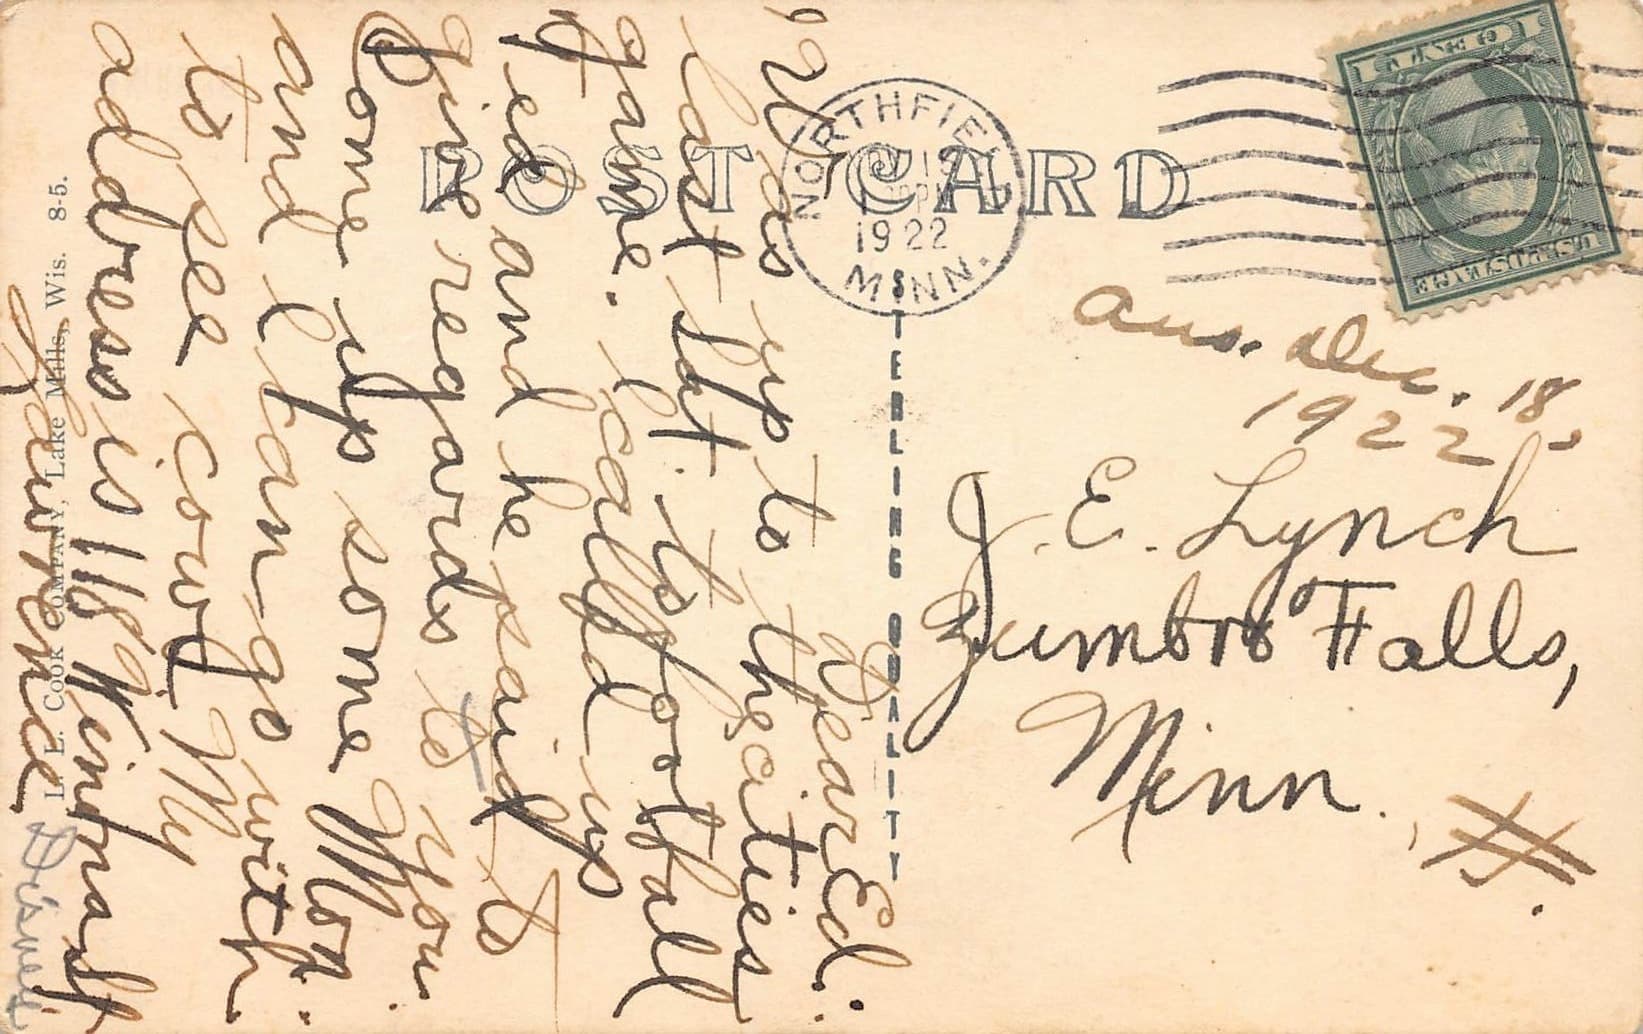 POST CARD
NORTHFIELD
1922
MINN.
ans. Dec. 18,
1922
J. E. Lynch
Zumbro Falls,
Minn.
STERLING QUALITY
Dear Ed:
Was up to the cities
last Sat. to football
game. I called up
Ted and he said to
give regards to you.
Come up some Mon.
and I can go with
to see court My
address is 118 W
Lawrence
Disney
L. E. COOK COMPANY, Lake Mills, Wis. 8-5.